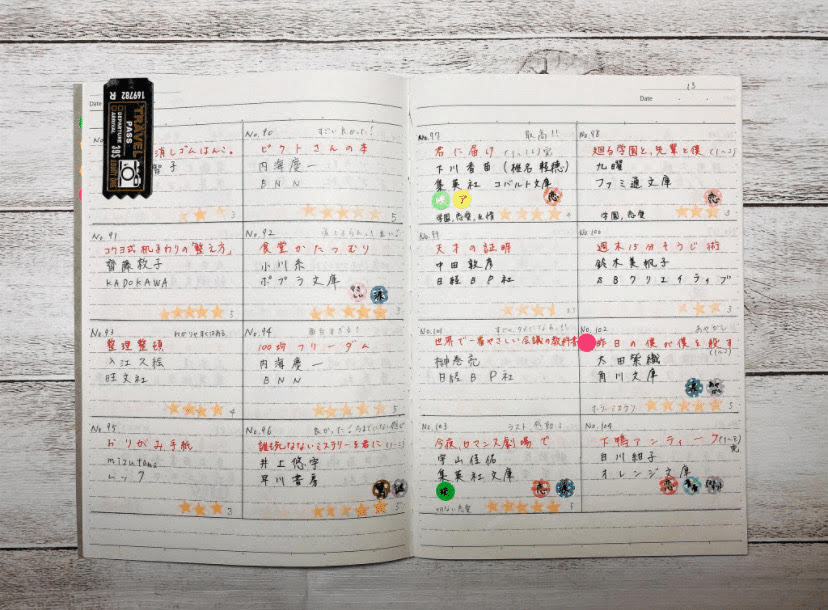 Date
169782 R
TRAVEL
PASS
DEPARTURE
ARRIVAL
395
消しゴムはんこ。
智子
3
No.90
すごい良かった!
ピクトさんの本
内海慶一
BNN
5
No.91
コクヨ式机まわりの「整え方」
齋藤敦子
KADOKAWA
5
No.92
食堂かたつむり
小川糸
ポプラ文庫
涙
5
No.93
わかりやすくはある。
整理整頓
入江久絵
旺文社
4
No.94
100均フリーダム
内海慶一
BNN
5
No.95
おりがみ手紙
mizutama
ムック
3
No.96
誰も死なないミステリーを君に(1~2)
井上悠宇
早川書房
5
Date
No.97
最高!!
君に届け
下川香苗(椎名軽穂)
集英社 コバルト文庫
ア
恋
学園,恋愛,友情
4
No.98
廻る学園と、先輩と僕(1~2)
九曜
ファミ通文庫
恋
学園,恋愛
3
No.99
天才の証明
中田敦彦
日経BP社
No.100
週末15分そうじ術
鈴木美帆子
SBクリエイティブ
3
No.101
世界で一番やさしい会議の教科書
榊巻亮
日経BP社
5
No.102
あやかし
昨日の僕が僕を殺す
(1~2)
太田紫織
角川文庫
ホラーミステリ
5
No.103
ラスト感動!
今夜、ロマンス劇場で
宇山佳佑
集英社文庫
恋
涙
切ない恋愛
5
No.104
下鴨アンティーク(1~8)
完
白川紺子
オレンジ文庫
恋